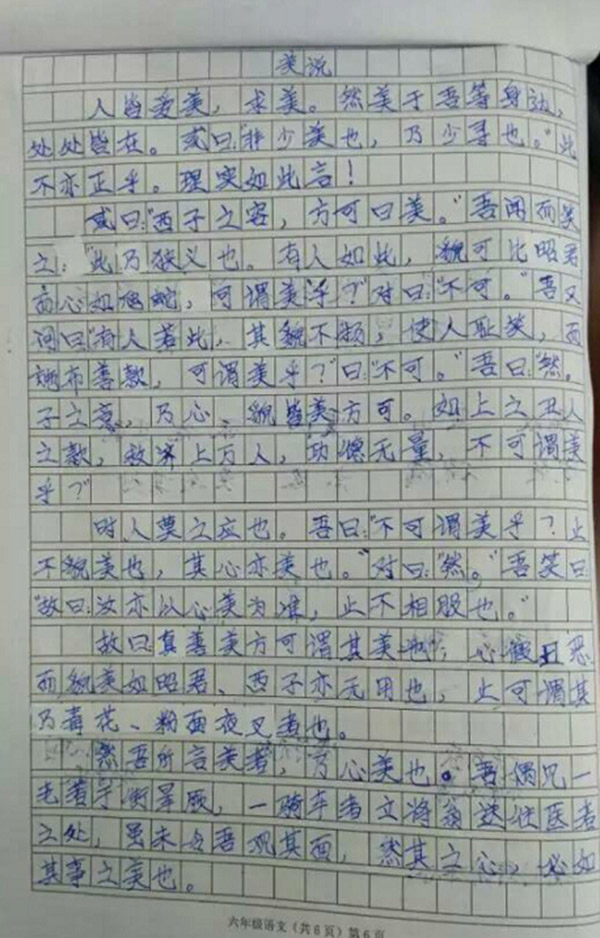 美说
人皆爱美，求美。然美于吾等身边，
处处皆在。或曰："非少美也，乃少寻也。"此
不亦正乎。理实如此言！
或曰："西子之容，方可曰美。"吾闻而笑
之："此乃狭义也。有人如此，貌可比昭君
而心如蛇，可谓美乎？"对曰："不可。"吾又
问曰："有人若此，其貌不扬，使人耻笑，而
布善款，可谓美乎？"曰："不可。"吾曰："然。
子之意，乃心、貌皆美方可。如上之丑人
之款，救济上万人，功德无量，不可谓美
乎？"
时人莫之应也。吾曰："不可谓美乎？止
不貌美也，其心亦美也。"对曰："然。"吾笑曰
"故曰：汝亦以心美为准，止不相服也。"
故曰真善美方可谓其美也，心丑恶
而貌美如昭君、西子亦无用也，止可谓其
乃毒花、粉面夜叉者也。
然吾所言美者，乃心美也。吾偶见一
老者于街晕厥，一骑车者立将翁送往医者
之处，虽未令吾观其面，然其之心，必如
其事之美也。
六年级语文（共6页）第6页